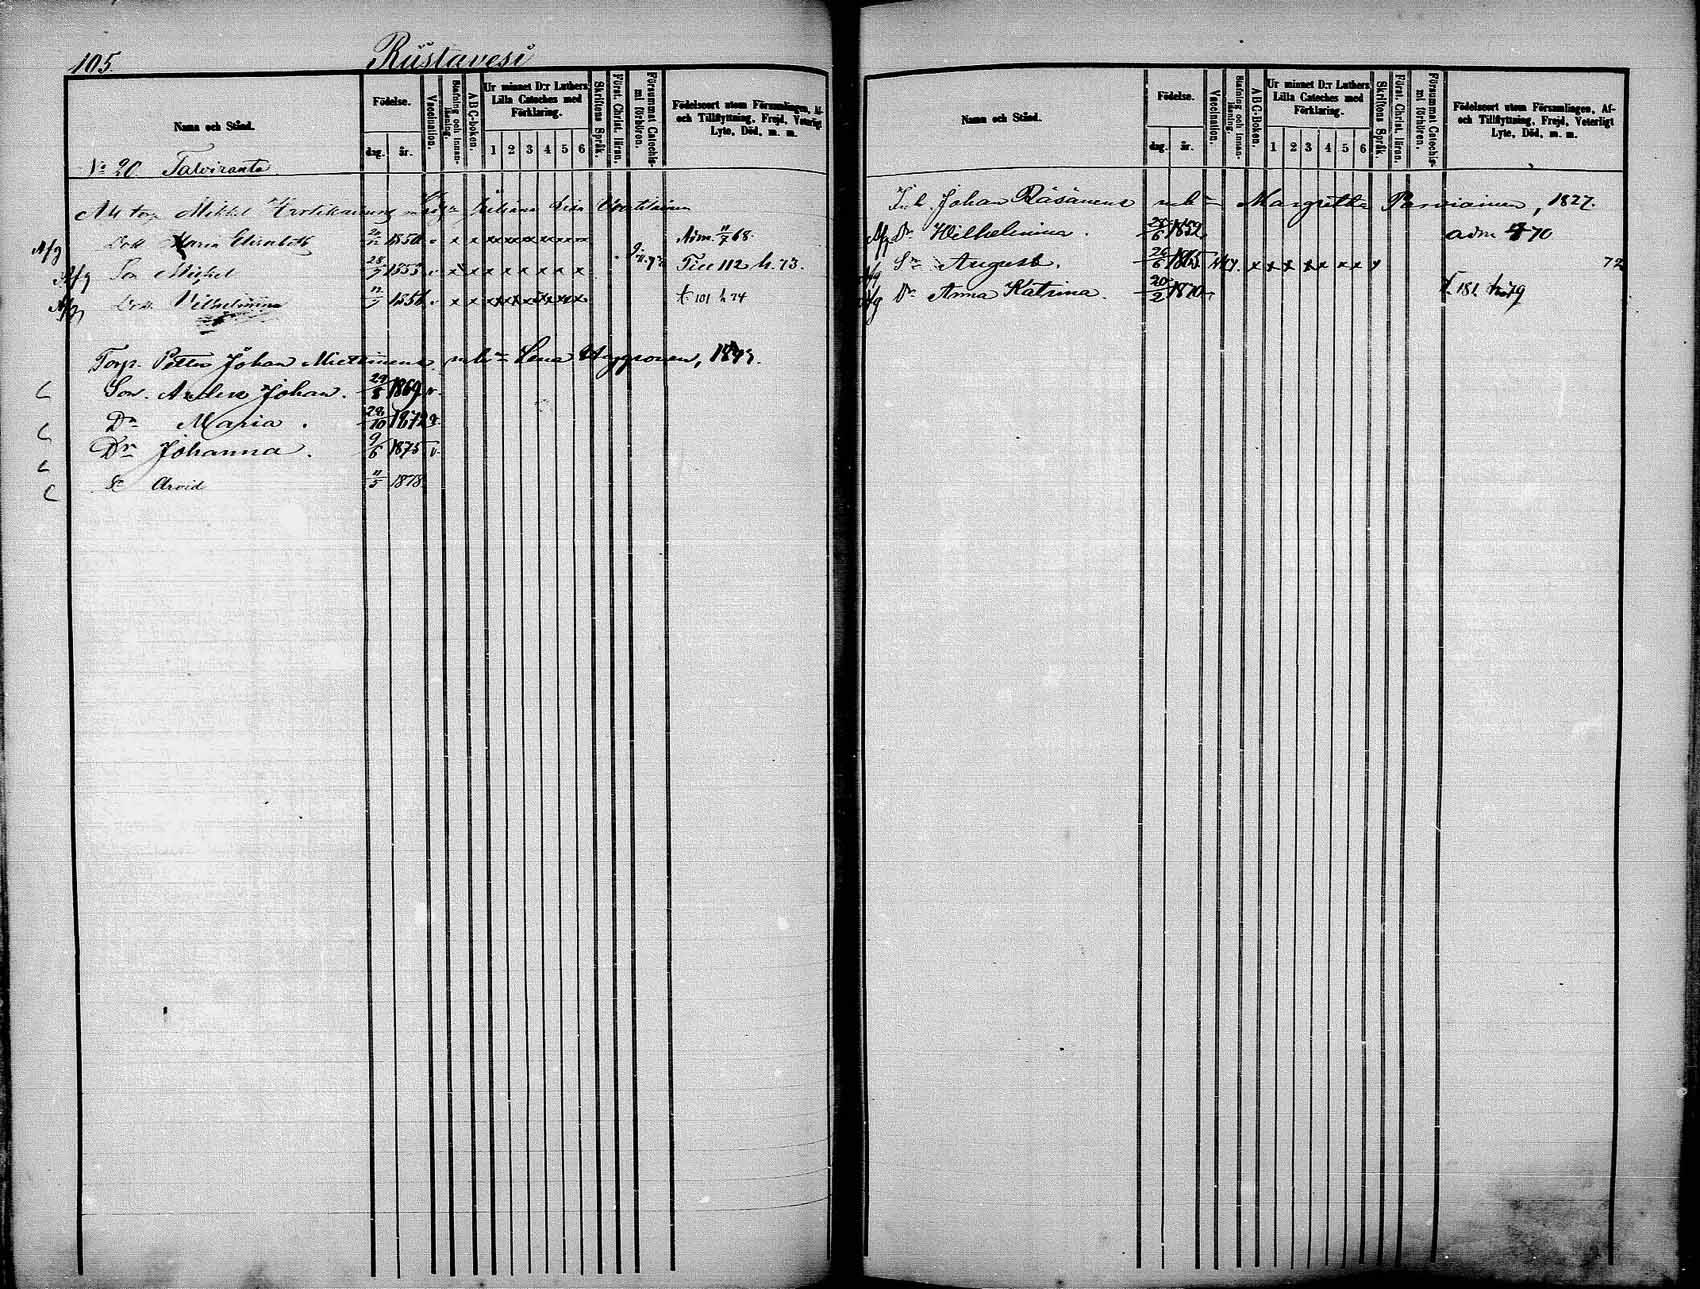 105.
Riistavesi
Nama och Stånd.
Födelse.
dag. år.
Vaccination.
Stafning och innanläsning.
A B C-boken.
Ur minnet D:r Luthers
Lilla Cateches med
Förklaring.
1 2 3 4 5 6
Skriftens Språk.
Först. Christ. läran.
Försummat Catechismi förhören.
Födelseort utom Församlingen, Af-
och Tillflyttning, Frejd, Veterligt
Lyte, Död, m. m.
No 20 Talviranta
Mikkel
Dott Maria Elisabeth 1850 v x x Adm. 11/7 68.
Afg Son Mickel 28/7 1853 v x x Till 112 h. 73.
Afg Dott Vilhelmina 11/5 1856 v x x t. 101 h 74
Torp. Petter Johan Miettinens mh Lena 
Son. Anders Johan. 1869 v.
Dr Maria. 28/10 1872
Dr Johanna. 9/6 1875 v.
Sn Arvid 11/5 1878
Nama och Stånd.
Födelse.
dag. år.
Vaccination.
Stafning och innanläsning.
A B C-boken.
Ur minnet D:r Luthers
Lilla Cateches med
Förklaring.
1 2 3 4 5 6
Skriftens Språk.
Först. Christ. läran.
Försummat Catechismi förhören.
Födelseort utom Församlingen, Af-
och Tillflyttning, Frejd, Veterligt
Lyte, Död, m. m.
Johan Räsänens mh Margretha Parviainen, 1827.
Afg Dr Wilhelmina. 1852 adm 70
Afg Sn August. 26/6 1865 x x 72
Afg Dr Anna Katrina. 20/2 1870 t. 181 h 79